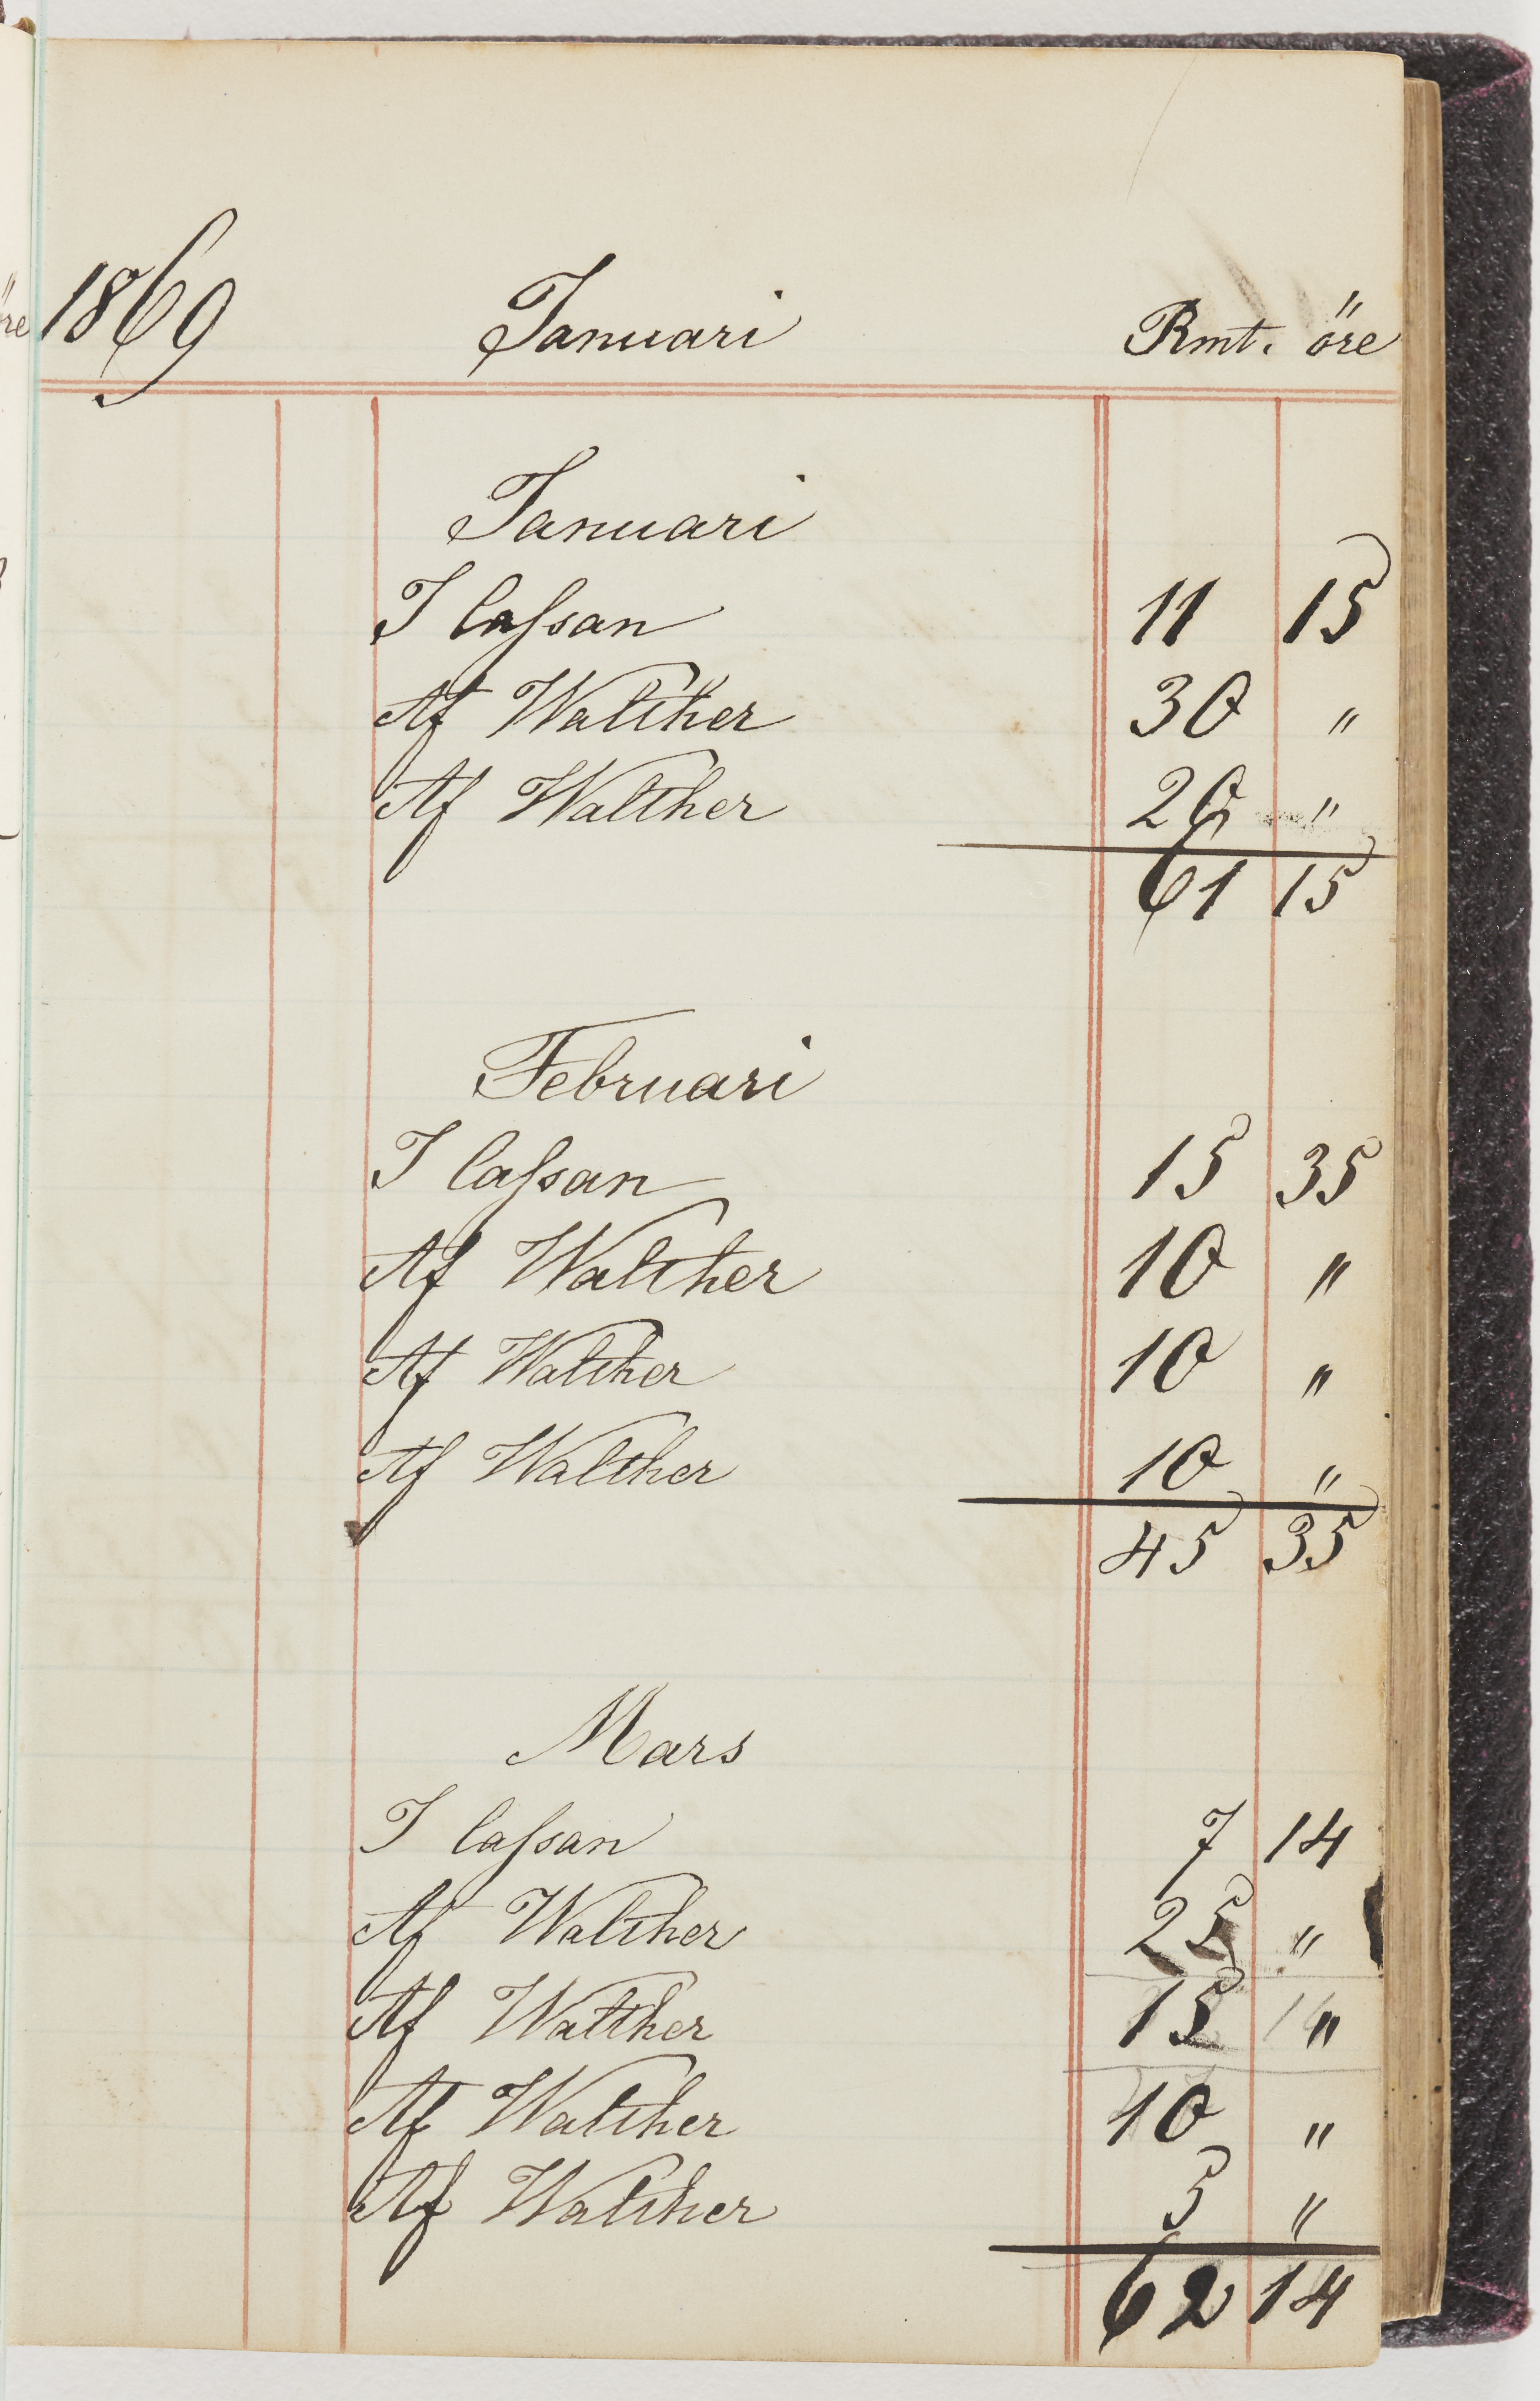 1869 Januari Rmt. öre
Januari
I Cassan 11 15
Af Walther 30 "
Af Walther 20 "
61 15
Februari
I Cassan 15 35
Af Walther 10 "
Af Walther 10 "
Af Walther 10 "
45 35
Mars
I Cassan 7 14
Af Walther 25 "
Af Walther 15 "
Af Walther 10 "
Af Walther 5 "
62 14